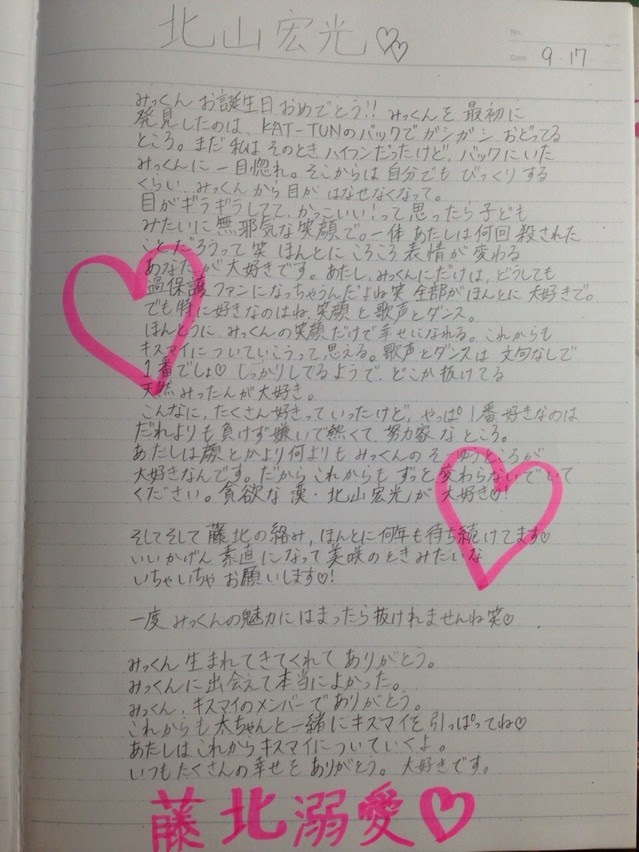 北山宏光♡♡
No.
Date 9.17
みっくん お誕生日 おめでとう!! みっくんを 最初に
発見したのは、KAT-TUNのバックで ガシガシ おどってる
ところ。まだ 私は そのとき ハイフンだったけど、バックにいた
みっくんに 一目惚れ。そこからは 自分でも びっくりする
くらい、みっくんから 目が はなせなくなって。
目がギラギラしてて、かっこいい!って 思ったら 子ども
みたいに 無邪気な 笑顔で。一体 あたしは 何回 殺された
ことだろうって 笑 ほんとに ころころ 表情が 変わる
あなたが 大好きです。あたし、みっくんにだけは、どうしても
過保護ファンになっちゃうんだよね 笑 全部がほんとに 大好きで。
でも 特に好きなのはね、笑顔 と 歌声とダンス。
ほんとうに、みっくんの 笑顔だけで 幸せになれる。これからも
キスマイについていこうって、思える。歌声とダンスは 文句なしで
1番でしょ♡ しっかりしてるようで、どこか 抜けてる
天然 みったんが 大好き。
こんなに、たくさん 好きって いったけど、やっぱ 1番 好きなのは
だれよりも 負けず嫌いで 熱くて、努力家 な ところ。
あたしは 顔 とかより 何よりも みっくんの そーゆうところが
大好きなんです。だから これからも ずっと 変わらないで いて
ください。貪欲な 漢・北山宏光が 大好き♡!
そしてそして 藤北の絡み、ほんとに 何年も 待ち続けてます♡
いいかげん 素直になって 美咲のときみたいな
いちゃいちゃ お願いします♡!
一度 みっくんの魅力に はまったら 抜けれませんね 笑♡
みっくん 生まれてきてくれて ありがとう。
みっくんに 出会えて 本当に よかった。
みっくん、キスマイのメンバーで ありがとう。
これからも 太ちゃんと 一緒に キスマイを 引っぱってね♡
あたしは これから キスマイに ついていくよ。
いつも たくさんの 幸せを ありがとう。大好きです。
藤北溺愛♡